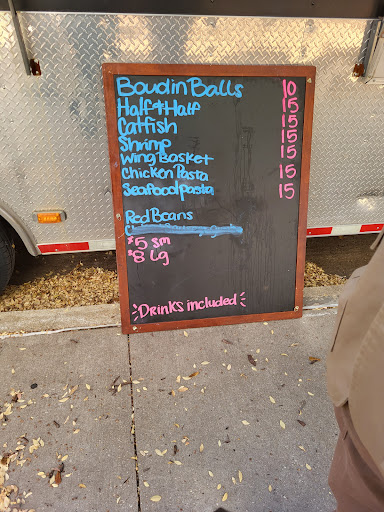 Boudin Balls 10
Half & Half 15
Catfish 15
Shrimp 15
Wing Basket 15
Chicken Pasta 15
Seafood pasta 15
Red Beans
*5 sm
*8 Lg
Drinks included